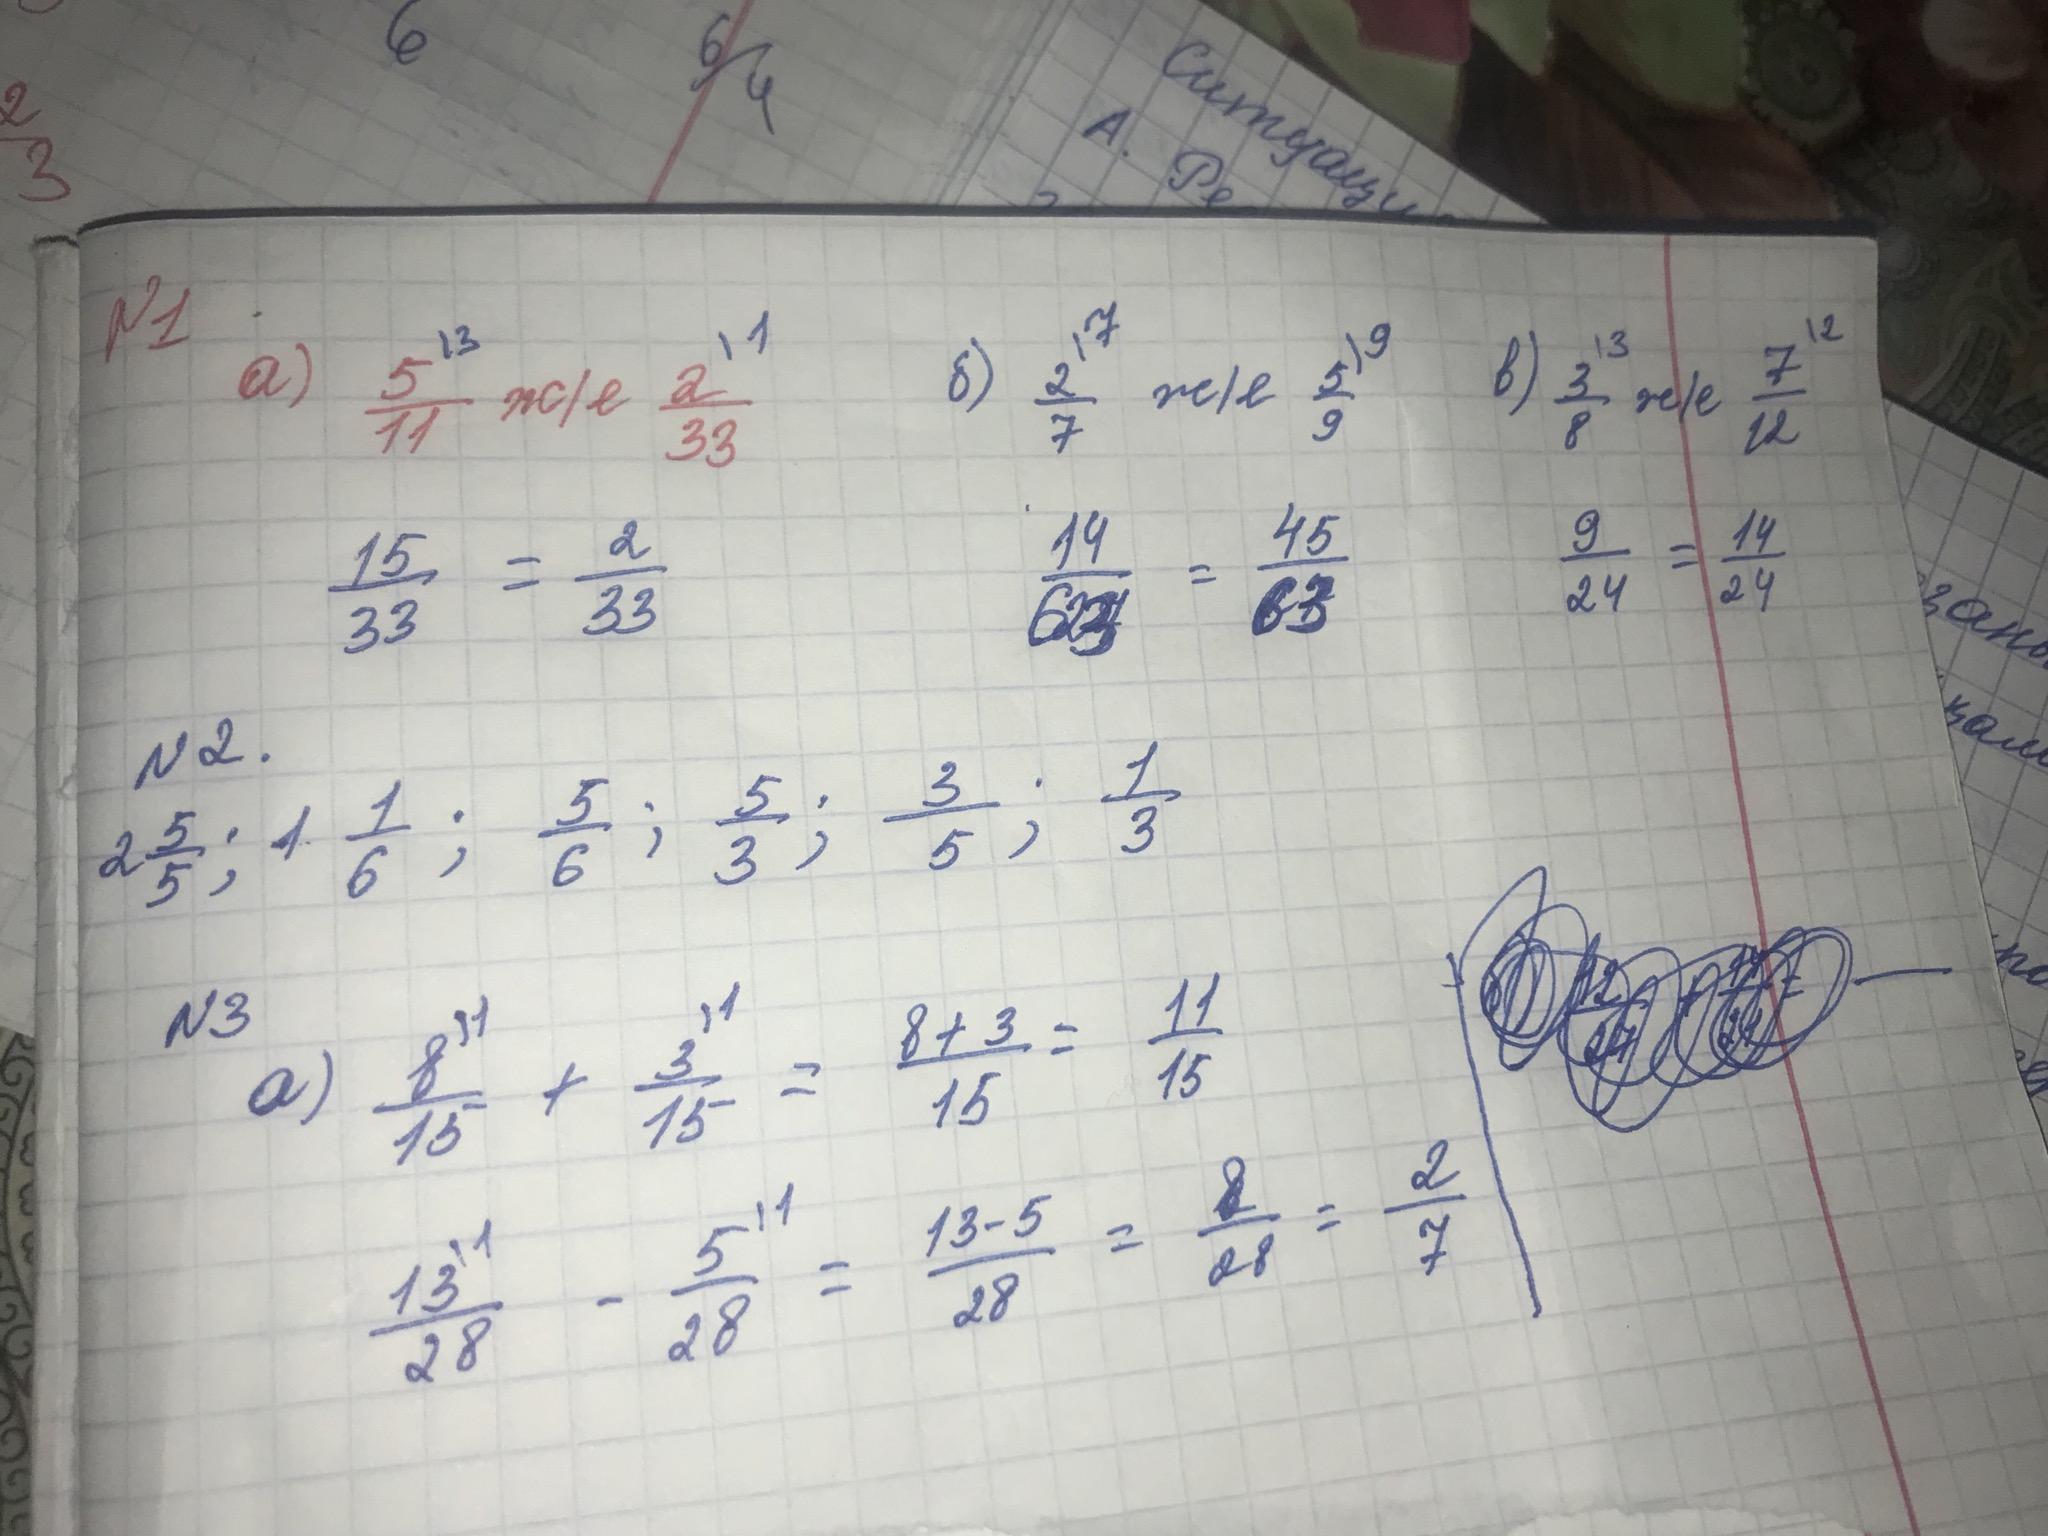 6 6/4
2/3
Ситуаци
А. Ре
N1
а) 5/11 \3 ж/е 2/33 \1 б) 2/7 \7 ж/е 5/9 \9 в) 3/8 \3 ж/е 7/12 \2
15/33 = 2/33 14/63 = 45/63 9/24 = 14/24
N2.
2 5/5; 1 1/6; 5/6; 5/3; 3/5; 1/3
N3
а) 8/15 \1 + 3/15 \1 = 8+3/15 = 11/15
13/28 \1 - 5/28 \1 = 13-5/28 = 8/28 = 2/7